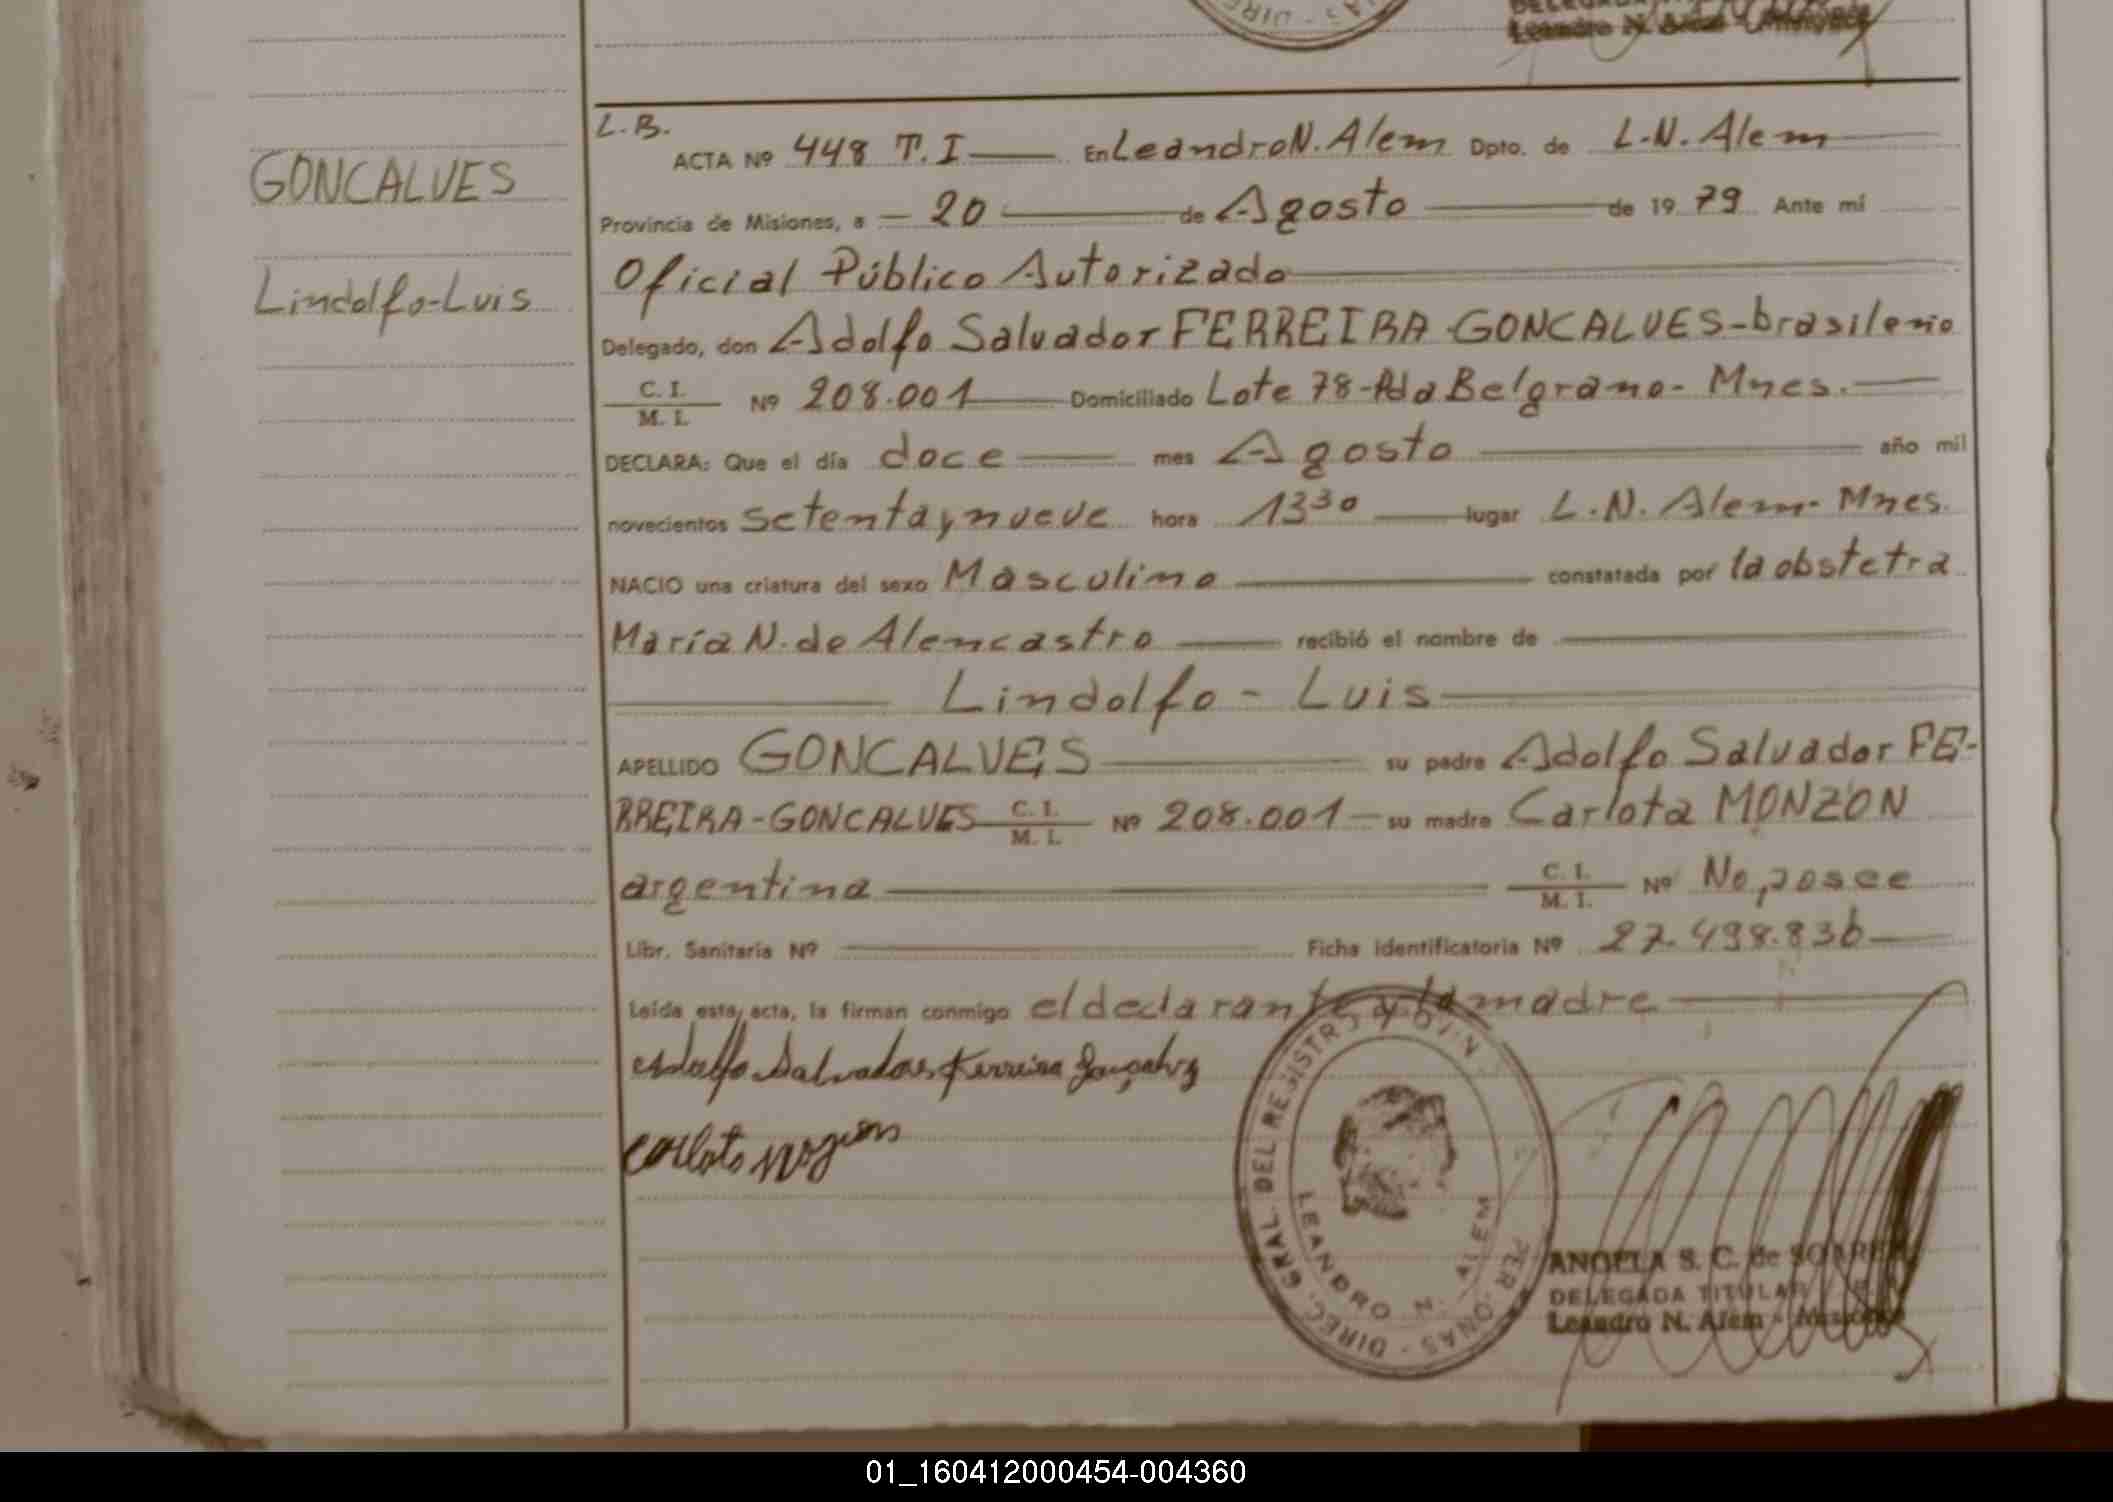 DELEGADA
Leandro N. Alem - Misiones
GONCALVES
Lindolfo-Luis
L.B.
ACTA Nº 448 T.I En Leandro N. Alem Dpto. de L.N. Alem
Provincia de Misiones, a 20 de Agosto de 1979 Ante mí
Oficial Público Autorizado
Delegado, don Adolfo Salvador FERREIRA-GONCALVES-brasilero
C. I. / M. I. Nº 208.001 Domiciliado Lote 78-Pda Belgrano- Mnes.
DECLARA: Que el día doce mes Agosto año mil
novecientos setenta y nueve hora 13 30 lugar L.N. Alem- Mnes.
NACIO una criatura del sexo Masculino constatada por la obstetra
María N. de Alencastro recibió el nombre de
Lindolfo - Luis
APELLIDO GONCALVES su padre Adolfo Salvador FE-
RREIRA-GONCALVES C. I. / M. I. Nº 208.001 su madre Carlota MONZON
argentina C. I. / M. I. Nº No posee
Libr. Sanitaria Nº Ficha Identificatoria Nº 27.498.836
Leída esta acta, la firman conmigo el declarante y la madre
Adolfo Salvador Ferreira Gonçalvz
DIREC. GRAL. DEL REGISTRO PROV. PERSONAS
LEANDRO N. ALEM
ANGELA S. C. de SOAREZ
DELEGADA TITULAR
Leandro N. Alem - Misiones
01_160412000454-004360